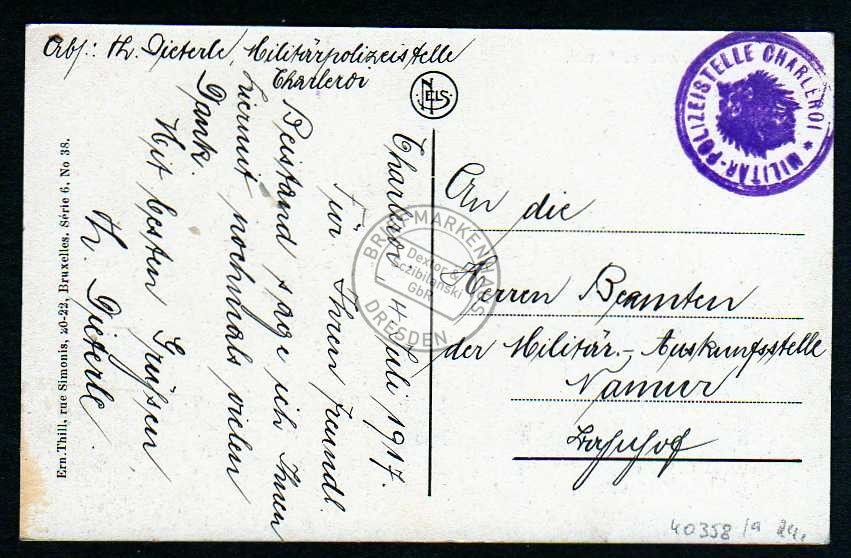 Abs.: Th. Dieterle, Militärpolizeistelle
Charleroi
NELS
MILITÄR-POLIZEISTELLE CHARLEROI *
Charleroi, 4. Juli 1917.
Für Ihren freundl.
Beistand sage ich Ihnen
hiermit nochmals vielen
Dank.
Mit besten Grüßen
Th. Dieterle
An die
Herren Beamten
der Militär.-Auskunftsstelle
Namur
Bahnhof
Ern. Thill, rue Simonis, 20-22, Bruxelles. Série 6, No 38.
BRIEFMARKENHAUS
Dextor &
Sczibilanski
GbR
DRESDEN
40358/a